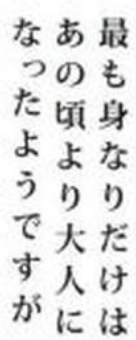 最も身なりだけは
あの頃より大人に
なったようですが